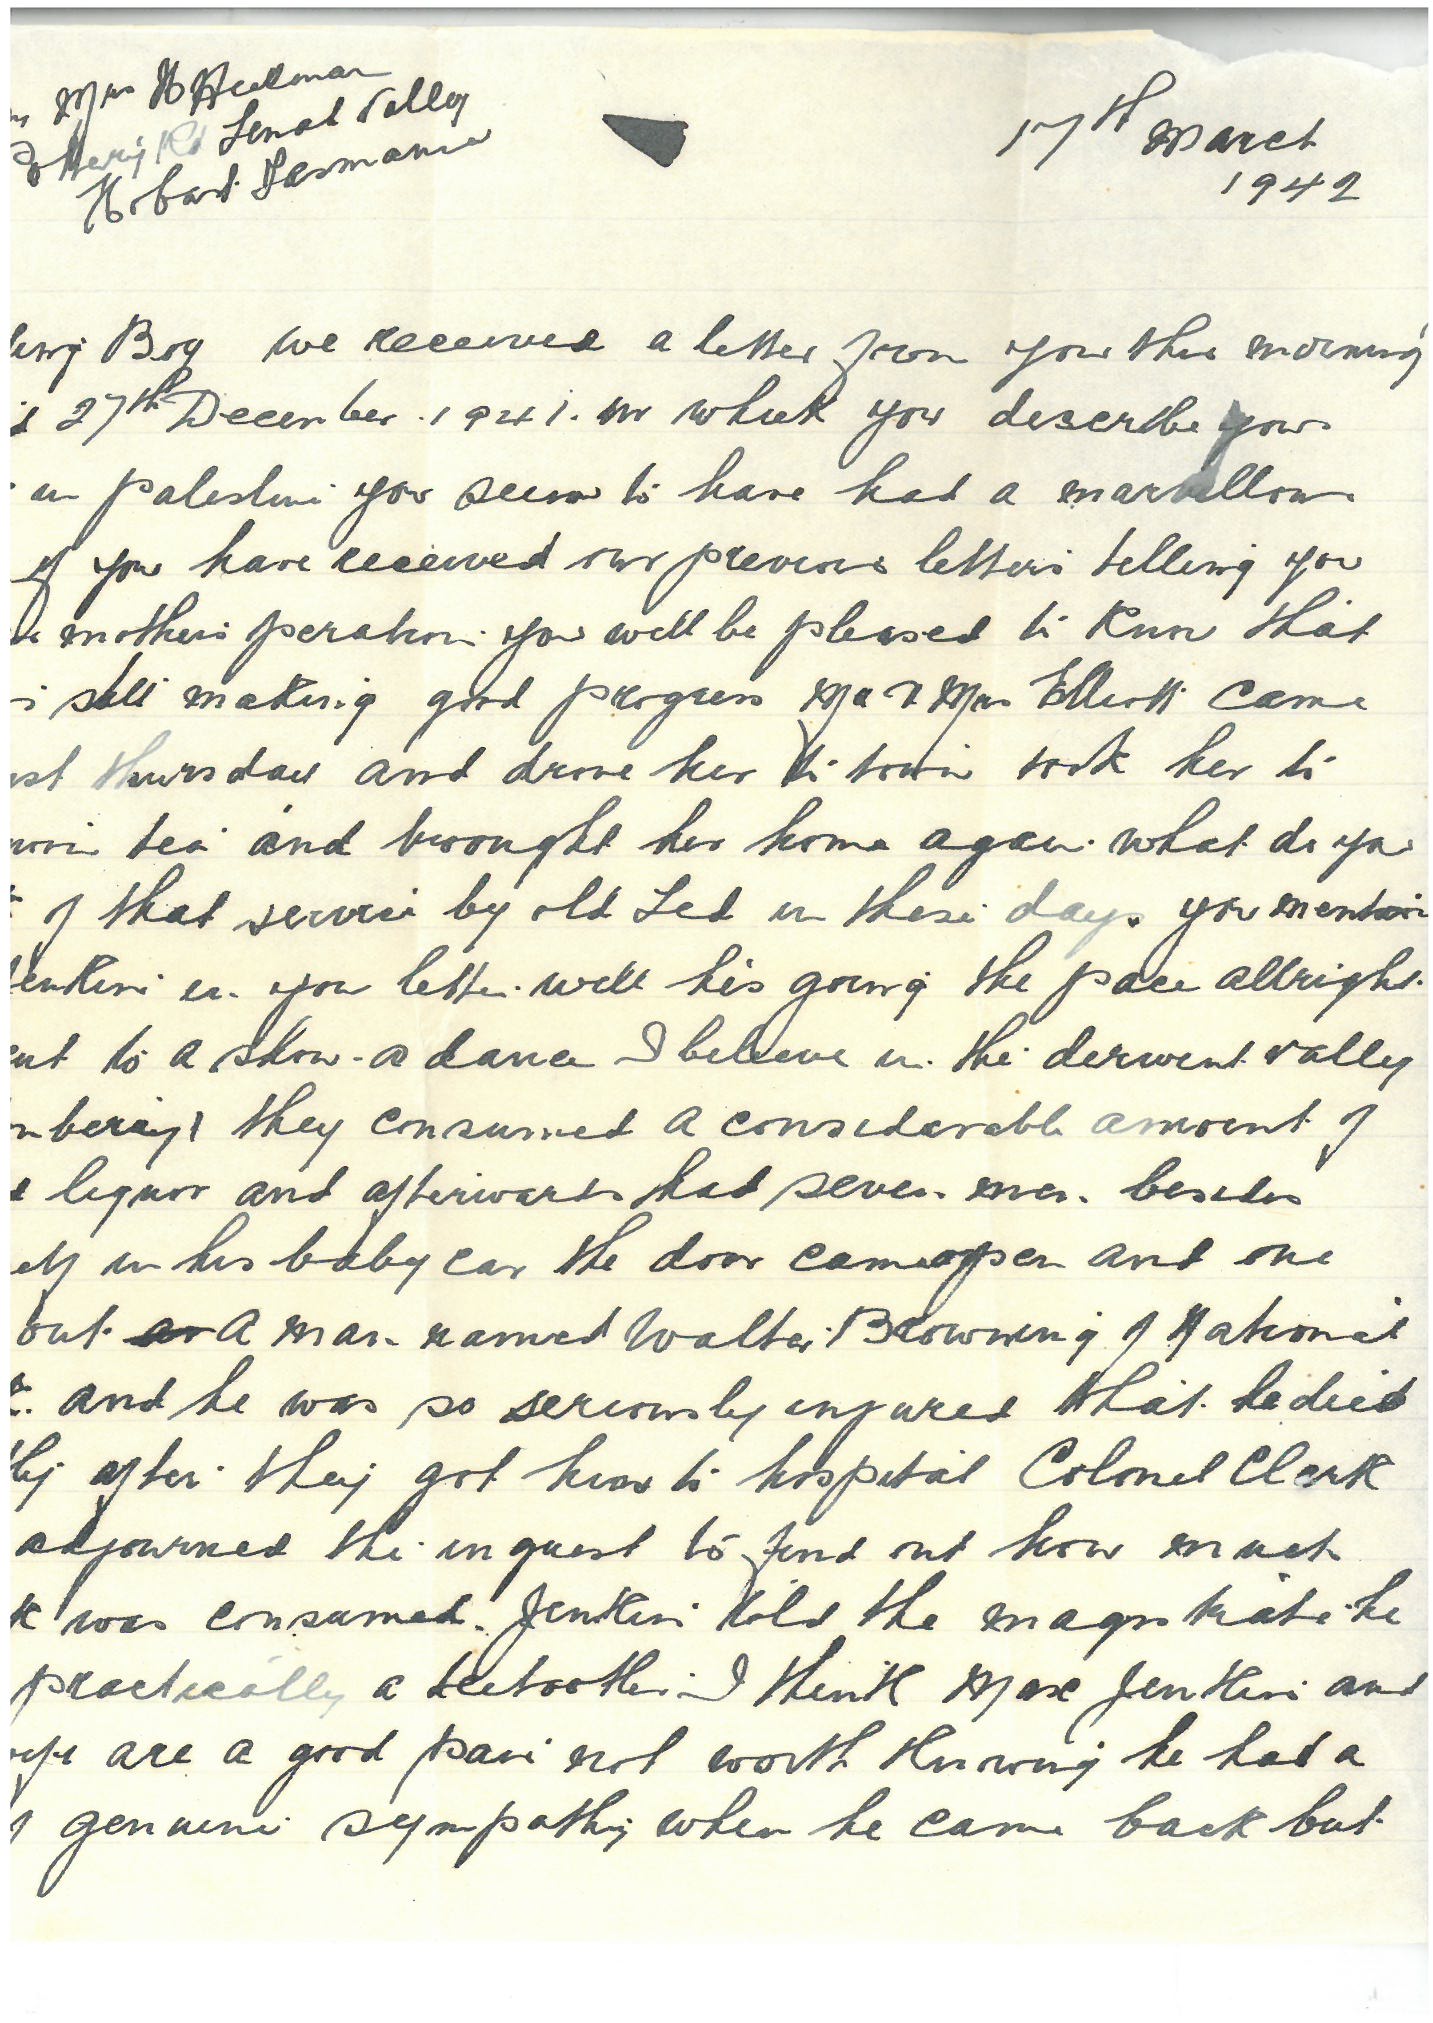 Mrs H Hickman
Pottery Rd Lenah Valley
Hobart Tasmania
17th March
1942
Boy we received a letter from you this morning
27th December. 1941. in which you describe your
in palestine you seem to have had a marvellous
if you have received our previous letters telling you
mothers operation you will be pleased to know that
still making good progress Mr & Mrs Elliott came
thursday and drove her to town took her to
tea and brought her home again what do you
of that service by old Ted in these days you mention
in your letter well his going the pace allright
to a show a dance I believe in the derwent valley
they consumed a considerable amount of
liquor and afterwards had seven men besides
in his baby car the door came open and one
out A man named Walter Browning of National
and he was so seriously injured that he died
after they got him to hospital Colonel Clark
adjourned the inquest to find out how much
was consumed. Jenkins told the magistrate he
practically a teetotler I think Max Jenkins and
are a good pair not worth knowing he had a
genuine sympathy when he came back but